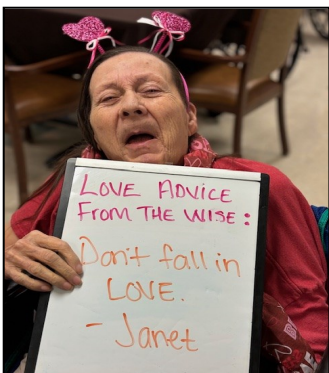 LOVE ADVICE
FROM THE WISE:
Don't fall in
LOVE.
- Janet